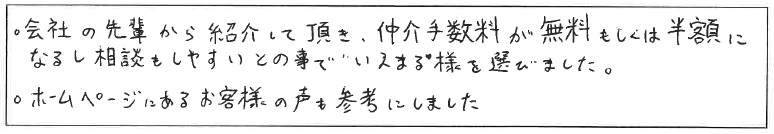 ○会社の先輩から紹介して頂き、仲介手数料が無料もしくは半額に
なるし相談もしやすいとの事で"いえまる"様を選びました。
○ホームページにあるお客様の声も参考にしました